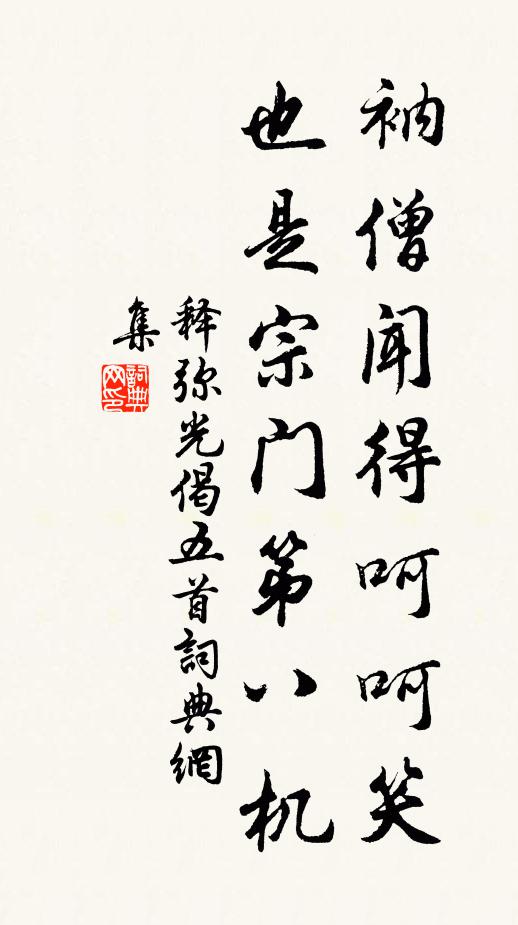 衲僧闻得呵呵笑
也是宗门第八机
释弥光偈五首詞典網
集
詞典
网印